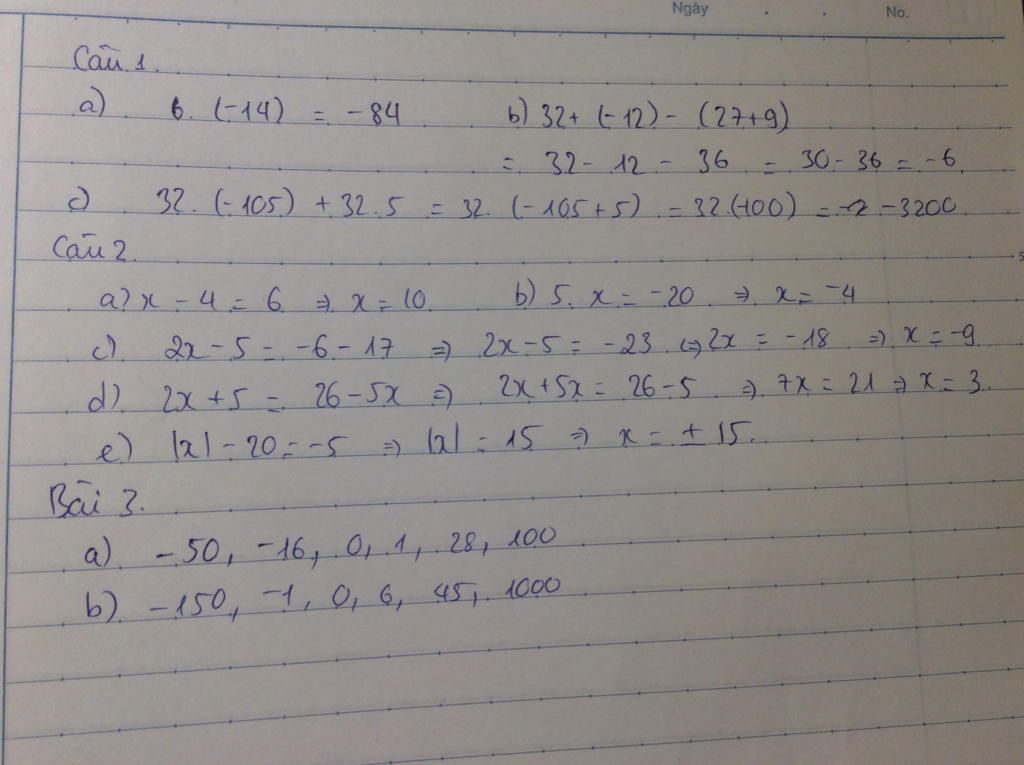 Ngày . . No.
Câu 1.
a) 6. (-14) = -84 b) 32+ (-12) - (27+9)
= 32 - 12 - 36 = 30 - 36 = -6.
c) 32. (-105) + 32.5 = 32. (-105+5) = 32.(-100) = -3200.
Câu 2.
a) x - 4 = 6 ⇒ x = 10. b) 5. x = -20 ⇒ x = -4
c) 2x - 5 = -6 - 17 ⇒ 2x - 5 = -23 ⇔ 2x = -18 ⇒ x = -9.
d) 2x + 5 = 26 - 5x ⇒ 2x + 5x = 26 - 5 ⇒ 7x = 21 ⇒ x = 3.
e) |x| - 20 = -5 ⇒ |x| = 15 ⇒ x = ± 15.
Bài 3.
a) -50, -16, 0, 1, 28, 100
b) -150, -1, 0, 6, 45, 1000